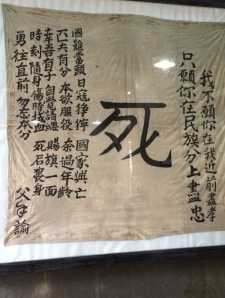 我不願你在我近前盡孝
只願你在民族分上盡忠
死
國難當頭 日寇猙獰 國家興亡
匹夫有分 本欲服役 奈過年齡
幸吾有子 自覺請纓 賜旗一面
時刻隨身 傷時拭血 死後裹身
勇往直前 勿忘本分
父手諭